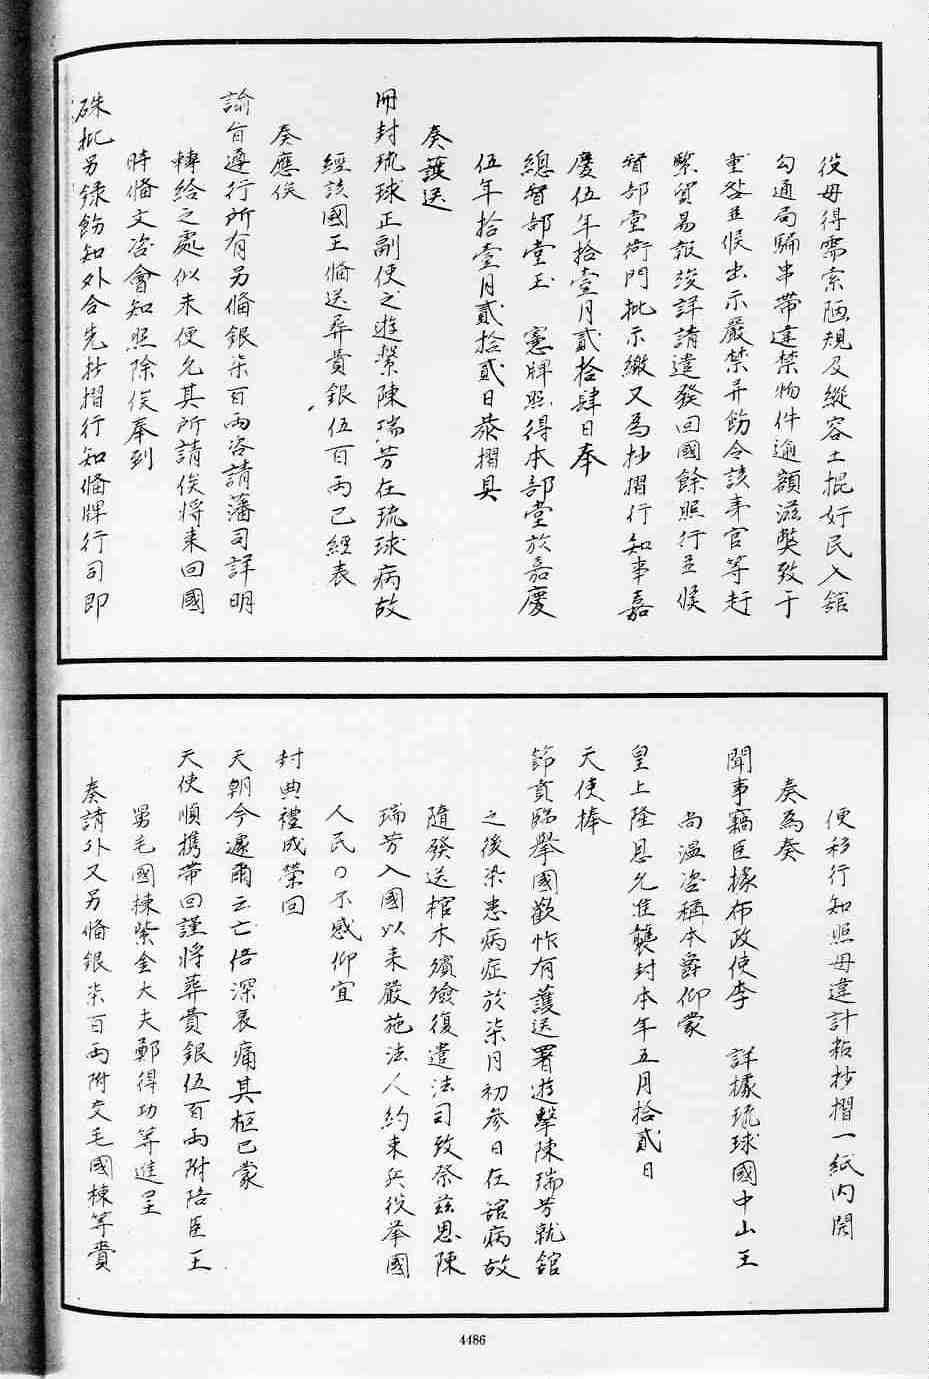 役毋得需索陋規及縱容土掍奸民入舘
勾通局騙串帶違禁物件逾額滋獘致于
重咎並候出示嚴禁并飭令該車官等赶
緊貿易報竣詳請遣發回國餘照行並候
督部堂衙門批示繳又為抄摺行知事嘉
慶伍年拾壹月貳拾肆日奉
總督部堂玉　憲牌照得本部堂於嘉慶
伍年拾壹月貳拾貳日恭摺具
奏護送
冊封琉球正副使之遊擊陳瑞芳在琉球病故
經該國王俻送葬費銀伍百両已經表
奏應俟
諭旨遵行所有另俻銀柒百両咨請藩司詳明
轉給之處似未便允其所請俟將来回國
時俻文咨會知照除俟奉到
硃批另錄飭知外合先抄摺行知俻牌行司即
便移行知照毋違計粘抄摺一紙内開
奏為奏
聞事竊臣據布政使李　詳據琉球國中山王
尚温咨稱本爵仰蒙
皇上隆恩允准襲封本年五月拾貳日
天使捧
節賁臨舉國歡忭有護送署遊擊陳瑞芳就舘
之後染患病症於柒月初參日在舘病故
隨發送棺木殯殮復遣法司致祭兹思陳
瑞芳入國以来嚴施法人約束兵役举國
人民〇不感仰宜
封典禮成榮回
天朝今遽爾云亡倍深哀痛其柩已蒙
天使順携帶回謹將葬費銀伍百両附陪臣王
舅毛國棟紫金大夫鄭得功等進呈
奏請外又另俻銀柒百両附交毛國棟等賫
4486